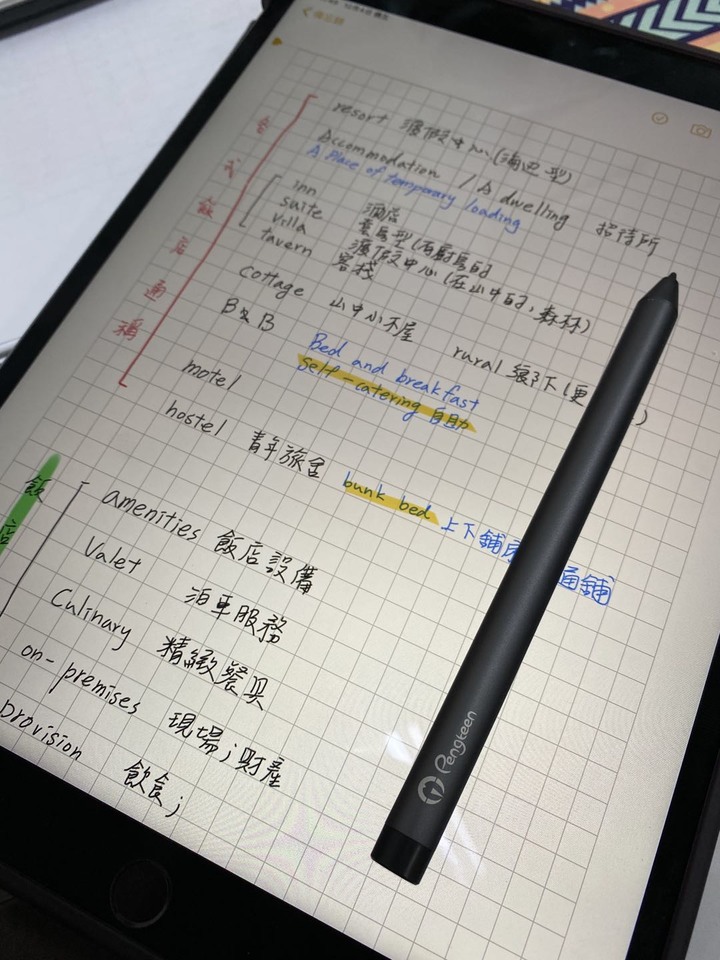 備忘錄
各式飯店通稱
resort 渡假中心(海边型)
Accommodation / A dwelling 招待所
A place of temporary loading
inn 酒店
suite 套房型(有廚房的
villa 渡假中心(在山中的,森林)
tavern 客栈
cottage 山中小木屋 rural 鄉下(更
B&B Bed and breakfast
self-catering 自助
motel
hostel 青年旅舍 bunk bed 上下鋪 通鋪
飯店
amenities 飯店設備
Valet 泊車服務
Culinary 精緻餐具
on-premises 現場;財產
provision 飲食;
Pengkeen